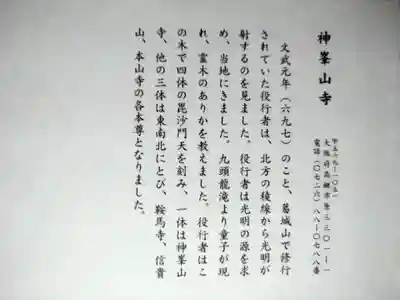 神峯山寺
大阪府高槻市原三三〇一ー一
電話(〇七二六)八八ー〇七八八番
文武元年(六九七)のこと、葛城山で修行
されていた役行者は、北方の稜線から光明が
射するのを見ました。役行者は光明の源を求
め、当地にきました。九頭龍滝より童子が現
れ、霊木のありかを教えました。役行者はこ
の木で四体の毘沙門天を刻み、一体は神峯山
寺、他の三体は東南北にとび、鞍馬寺、信貴
山、本山寺の各本尊となりました。